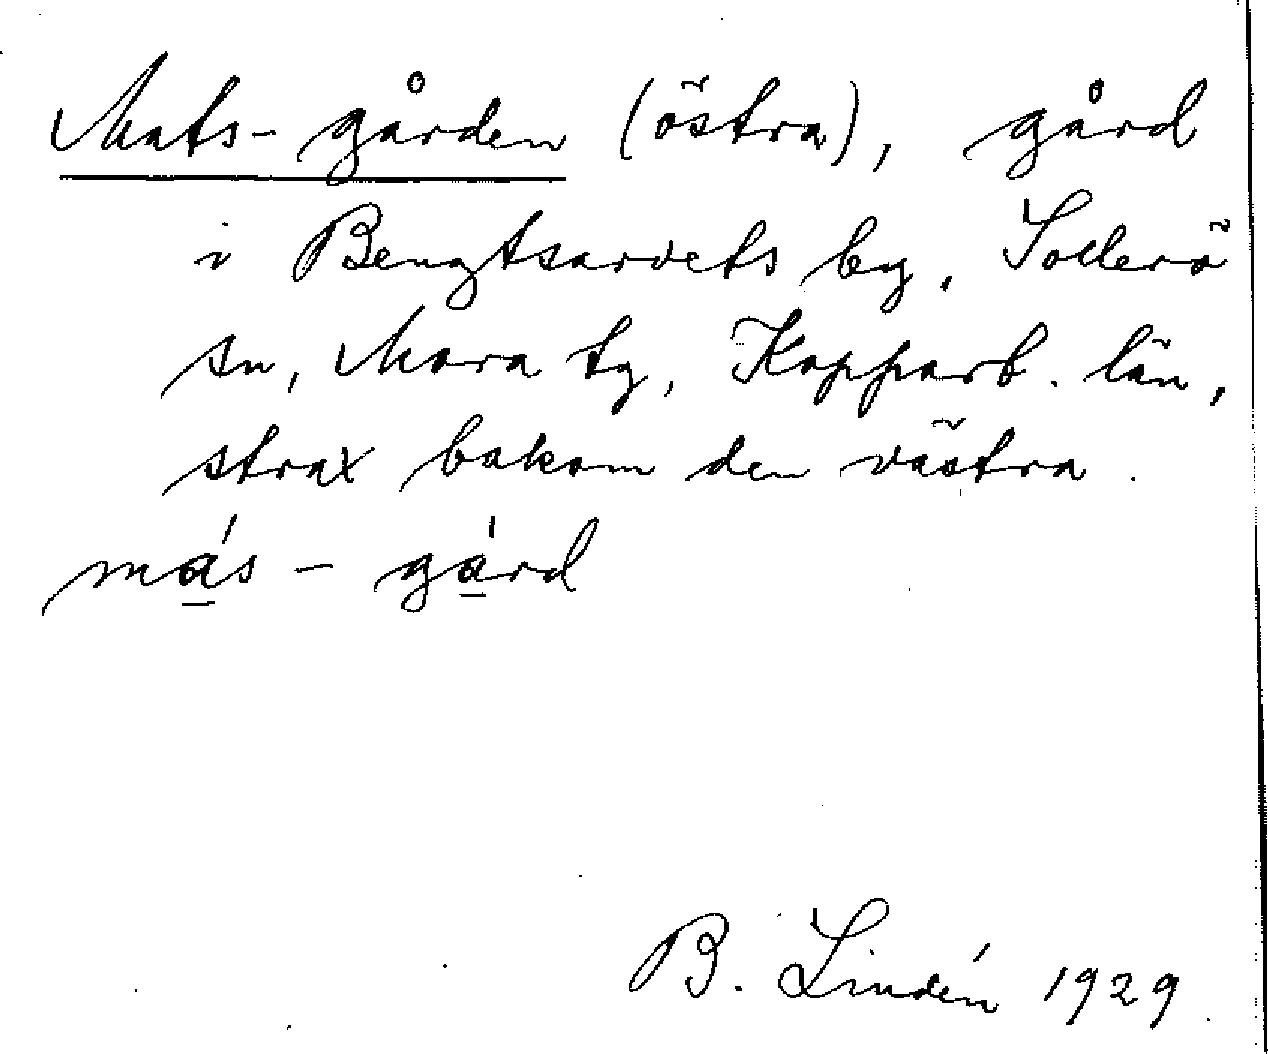 Mats-gården (östra), gård
i Bengtsarvets by, Sollerö
sn, Mora tg, Kopparb. län,
strax bakom den västra.
má̱s - gá̱rd
B. Lindén 1929